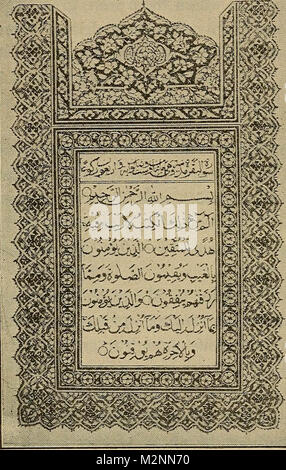 سورة البقرة
بسم الله الرحمن الرحيم
الم ذلك الكتاب لا ريب فيه
هدى للمتقين الذين يؤمنون
بالغيب ويقيمون الصلوة ومما
رزقنهم ينفقون والذين يؤمنون
بما أنزل إليك وما أنزل من قبلك
وبالاخرة هم يوقنون
alamy
M2NN70